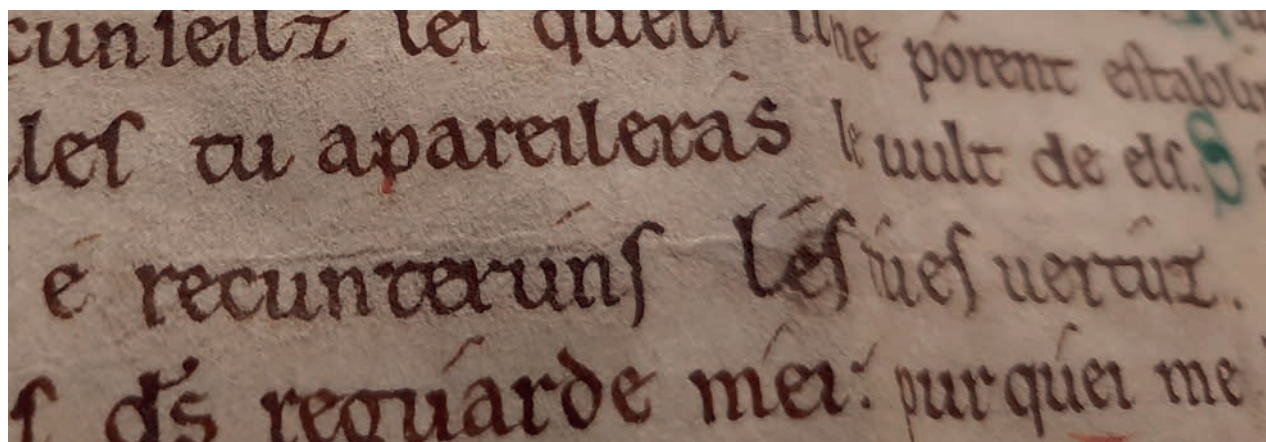 cunſeilz lei queu ne pórent eſtablir
leſ tu apareileras le uult de elſ. S
é recunterúnſ léſ túeſ uertúz.
ſ dſ̄ reguárde méi: purquéi me